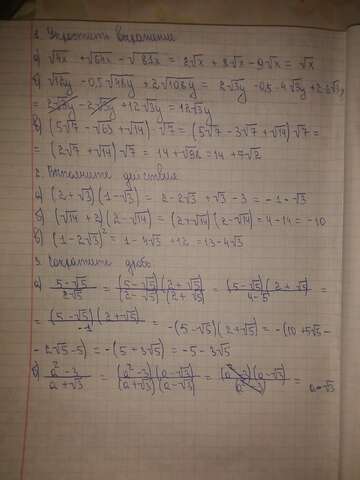 1. Упростить выражения
а) √4x + √64x - √81x = 2√x + 8√x - 9√x = √x
б) √12y - 0,5√48y + 2√108y = 2√3y - 0,5 · 4√3y + 2 ·
= 2√3y - 2√3y + 12√3y = 12√3y
в) (5√7 - √63 + √14) · √7 = (5√7 - 3√7 + √14) √7 =
= (2√7 + √14) · √7 = 14 + √98 = 14 + 7√2
2. Выполните действия
а) (2 + √3)(1 - √3) = 2 - 2√3 + √3 - 3 = -1 - √3
б) (√14 + 2)(2 - √14) = (2 + √14)(2 - √14) = 4 - 14 = -10
в) (1 - 2√3)² = 1 - 4√3 + 12 = 13 - 4√3
3. Сократите дробь
а) (5 - √5)/(2 - √5) = (5 - √5)(2 + √5)/(2 - √5)(2 + √5) = (5 - √5)(2 + √5)/(4 - 5) =
= (5 - √5)(2 + √5)/-1 = -(5 - √5)(2 + √5) = -(10 + 5√5 -
- 2√5 - 5) = -(5 + 3√5) = -5 - 3√5
б) (a² - 3)/(a + √3) = (a² - 3)(a - √3)/(a + √3)(a - √3) = (a² - 3)(a - √3)/(a² - 3) = a - √3